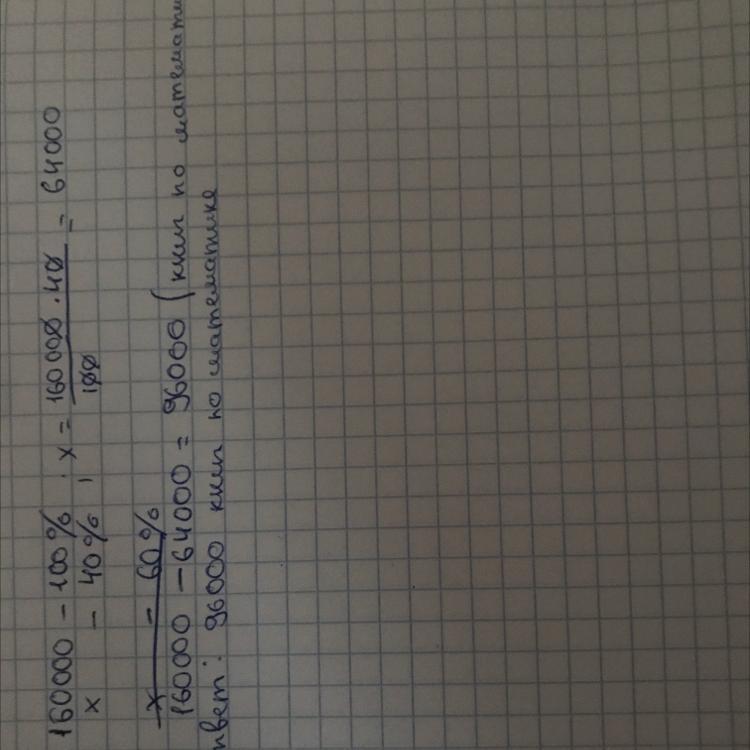 160000 - 100% ; x = 160000 · 40 / 100 = 64000
x - 40%
x - 60%
160000 - 64000 = 96000 (книг по математи
твет: 96000 книг по математике